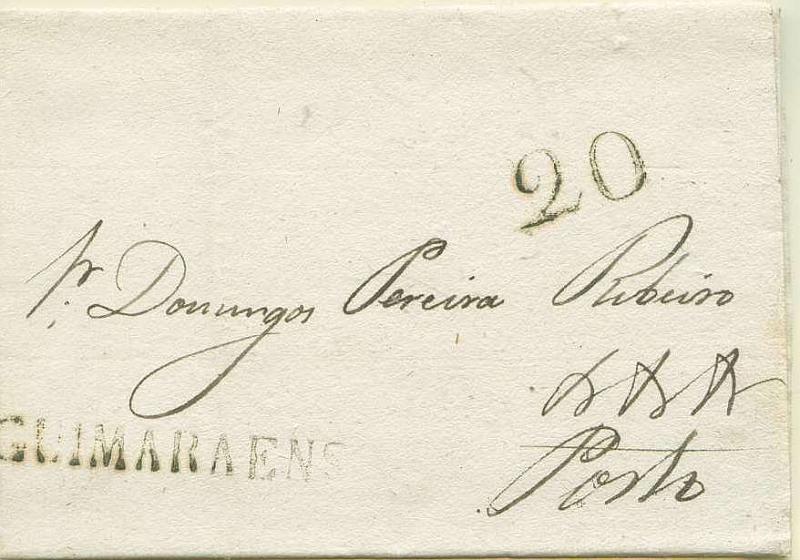 20
Sr. Domingos Pereira Ribeiro
GUIMARAENS
Porto